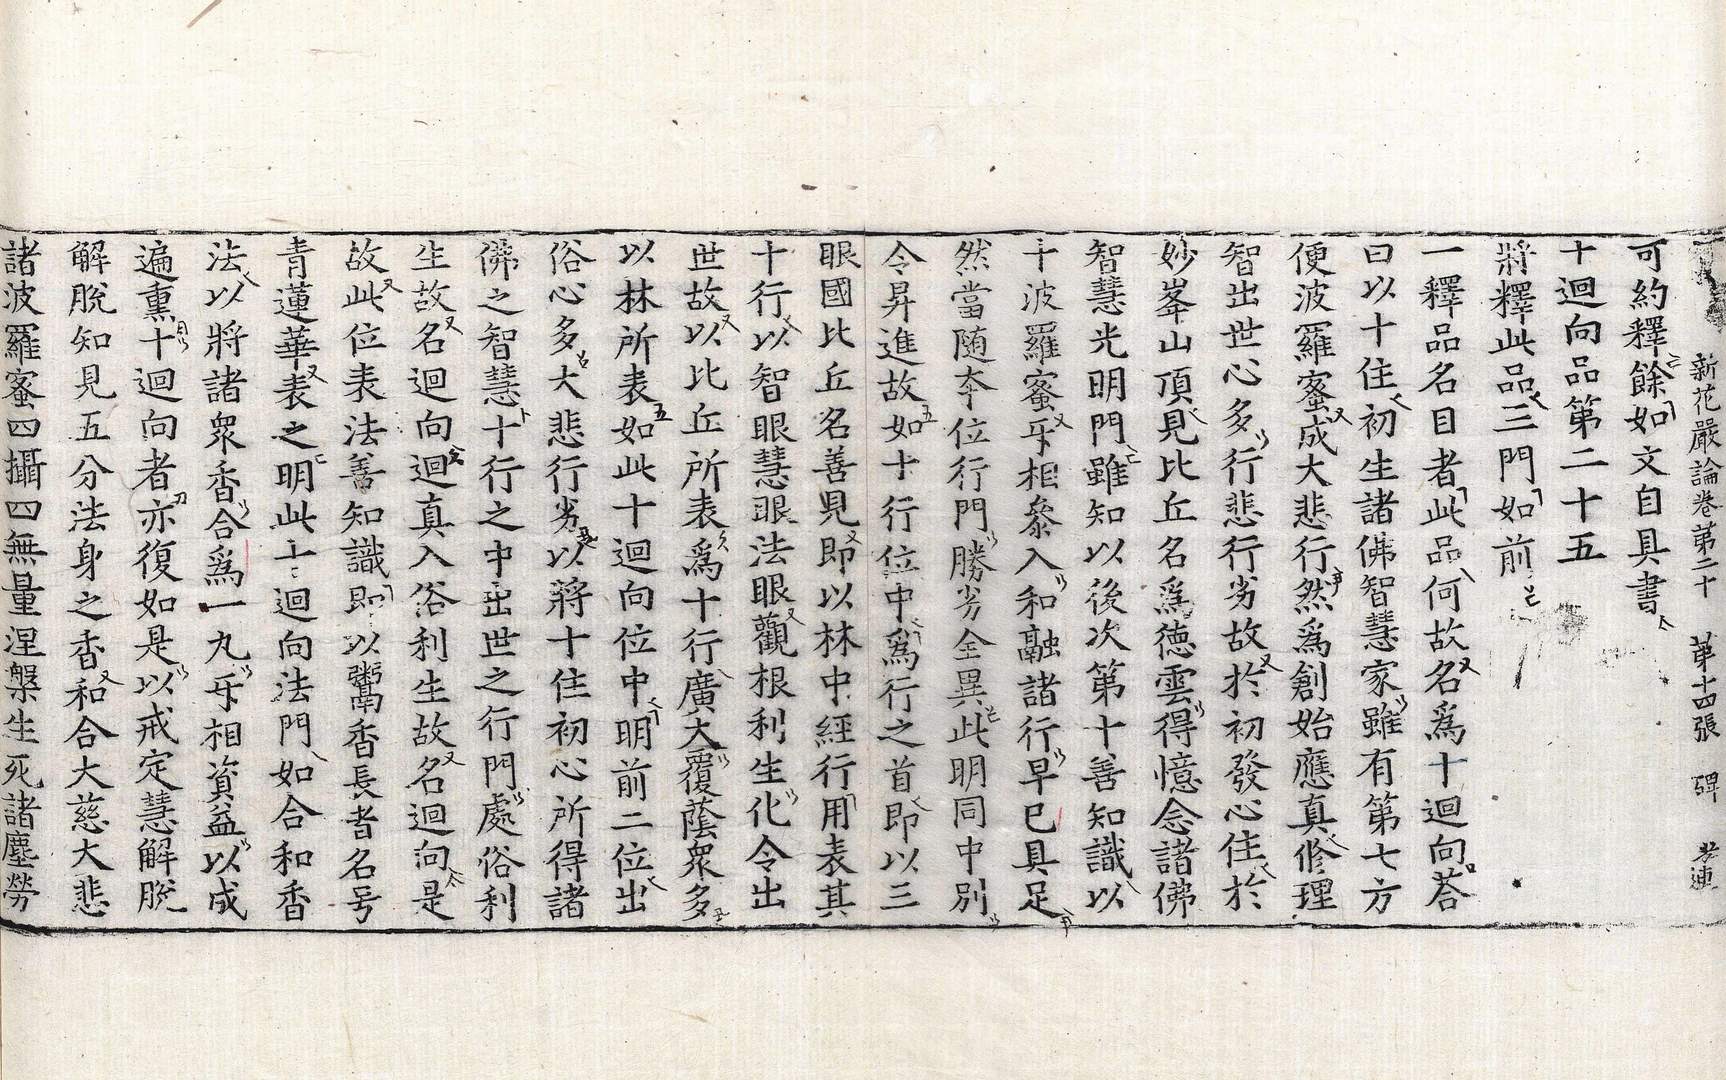 新花嚴論卷第二十 第十四張 碑
可約釋餘如文自具書
十迴向品第二十五
將釋此品三門如前
一釋品名目者此品何故名爲十迴向荅
曰以十住初生諸佛智慧家雖有第七方
便波羅蜜成大悲行然爲創始應真俢理
智出世心多行悲行劣故於初發心住於
妙峯山頂見比丘名爲德雲得憶念諸佛
智慧光明門雖知以後次第十善知識以
十波羅蜜㸦相叅入和融諸行早已具足
然當随夲位行門勝劣全異此明同中別
令昇進故如十行位中爲行之首即以三
眼國比丘名善見即以林中經行用表其
十行以智眼慧眼法眼觀根利生化令出
世故以比丘所表爲十行廣大覆蔭衆多
以林所表如此十迴向位中明前二位出
俗心多大悲行劣以將十住初心所得諸
佛之智慧十行之中出世之行門處俗利
生故名迴向迴真入俗利生故名迴向是
故此位表法善知識即以鬻香長者名号
青蓮華表之明此十迴向法門如合和香
法以將諸衆香合爲一丸㸦相資益以成
遍熏十迴向者亦復如是以戒定慧解脫
解脫知見五分法身之香和合大慈大悲
諸波羅蜜四攝四無量涅槃生死諸塵勞